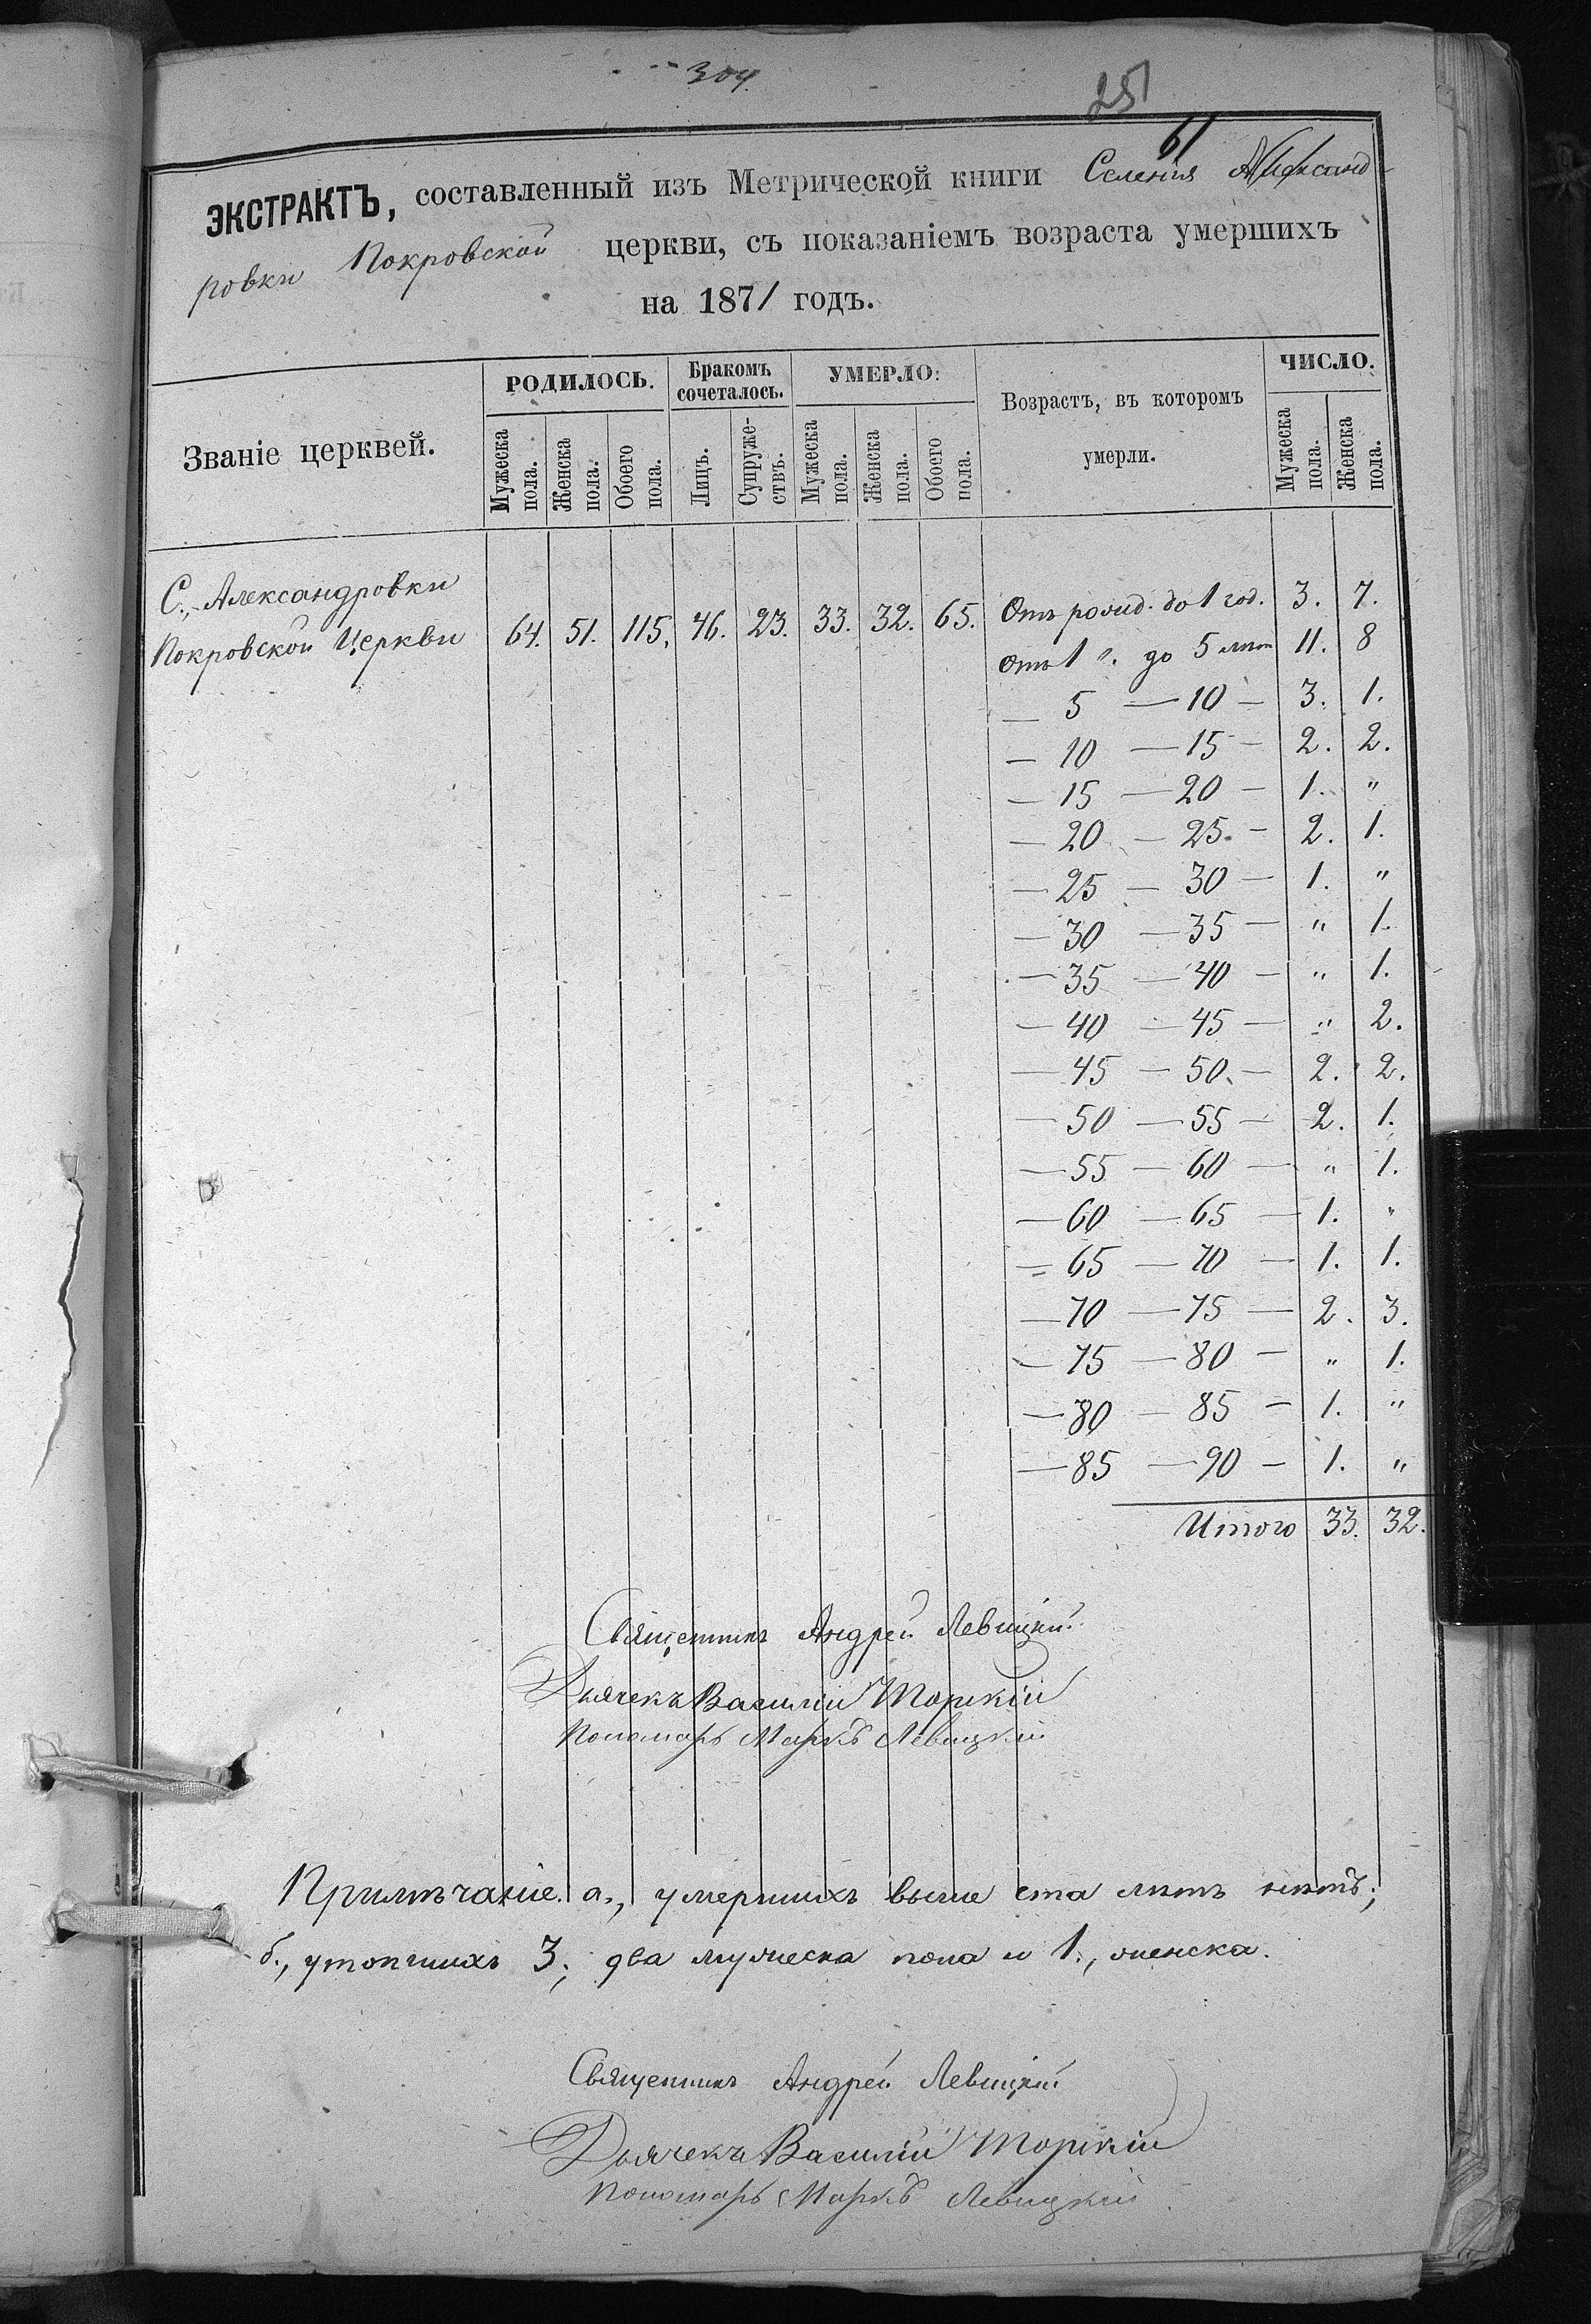 304.
251
61
ЭКСТРАКТЪ, составленный изъ Метрической книги Селенія Александ-
ровки Покровской церкви, съ показаніемъ возраста умершихъ
на 1871 годъ.
Званіе церквей. РОДИЛОСЬ. Бракомъ сочеталось. УМЕРЛО: Возрастъ, въ которомъ умерли. ЧИСЛО.
Мужеска пола. Женска пола. Обоего пола. Лицъ. Супруже-ствъ. Мужеска пола. Женска пола. Обоего пола. Мужеска пола. Женска пола.
С. Александровки
Покровской Церкви 64. 51. 115. 46. 23. 33. 32. 65. Отъ рожд. до 1 год. 3. 7.
Отъ 1 г. до 5 лѣт 11. 8
— 5 — 10 — 3. 1.
— 10 — 15 — 2. 2.
— 15 — 20 — 1. "
— 20 — 25 — 2. 1.
— 25 — 30 — 1. "
— 30 — 35 — " 1.
— 35 — 40 — " 1.
— 40 — 45 — " 2.
— 45 — 50 — 2. 2.
— 50 — 55 — 2. 1.
— 55 — 60 — " 1.
— 60 — 65 — 1. "
— 65 — 70 — 1. 1.
— 70 — 75 — 2. 3.
— 75 — 80 — " 1.
— 80 — 85 — 1. "
— 85 — 90 — 1. "
Итого 33. 32.
Священникъ Андрей Левицкій
Дьячекъ Василій Торскій
Пономарь Маркъ Левицкій
Примѣчаніе. а., умершихъ выше ста лѣтъ нѣтъ;
б., утопшихъ 3; два мужеска пола и 1., женска.
Священникъ Андрей Левицкій
Дьячекъ Василій Торскій
Пономарь Маркъ Левицкій